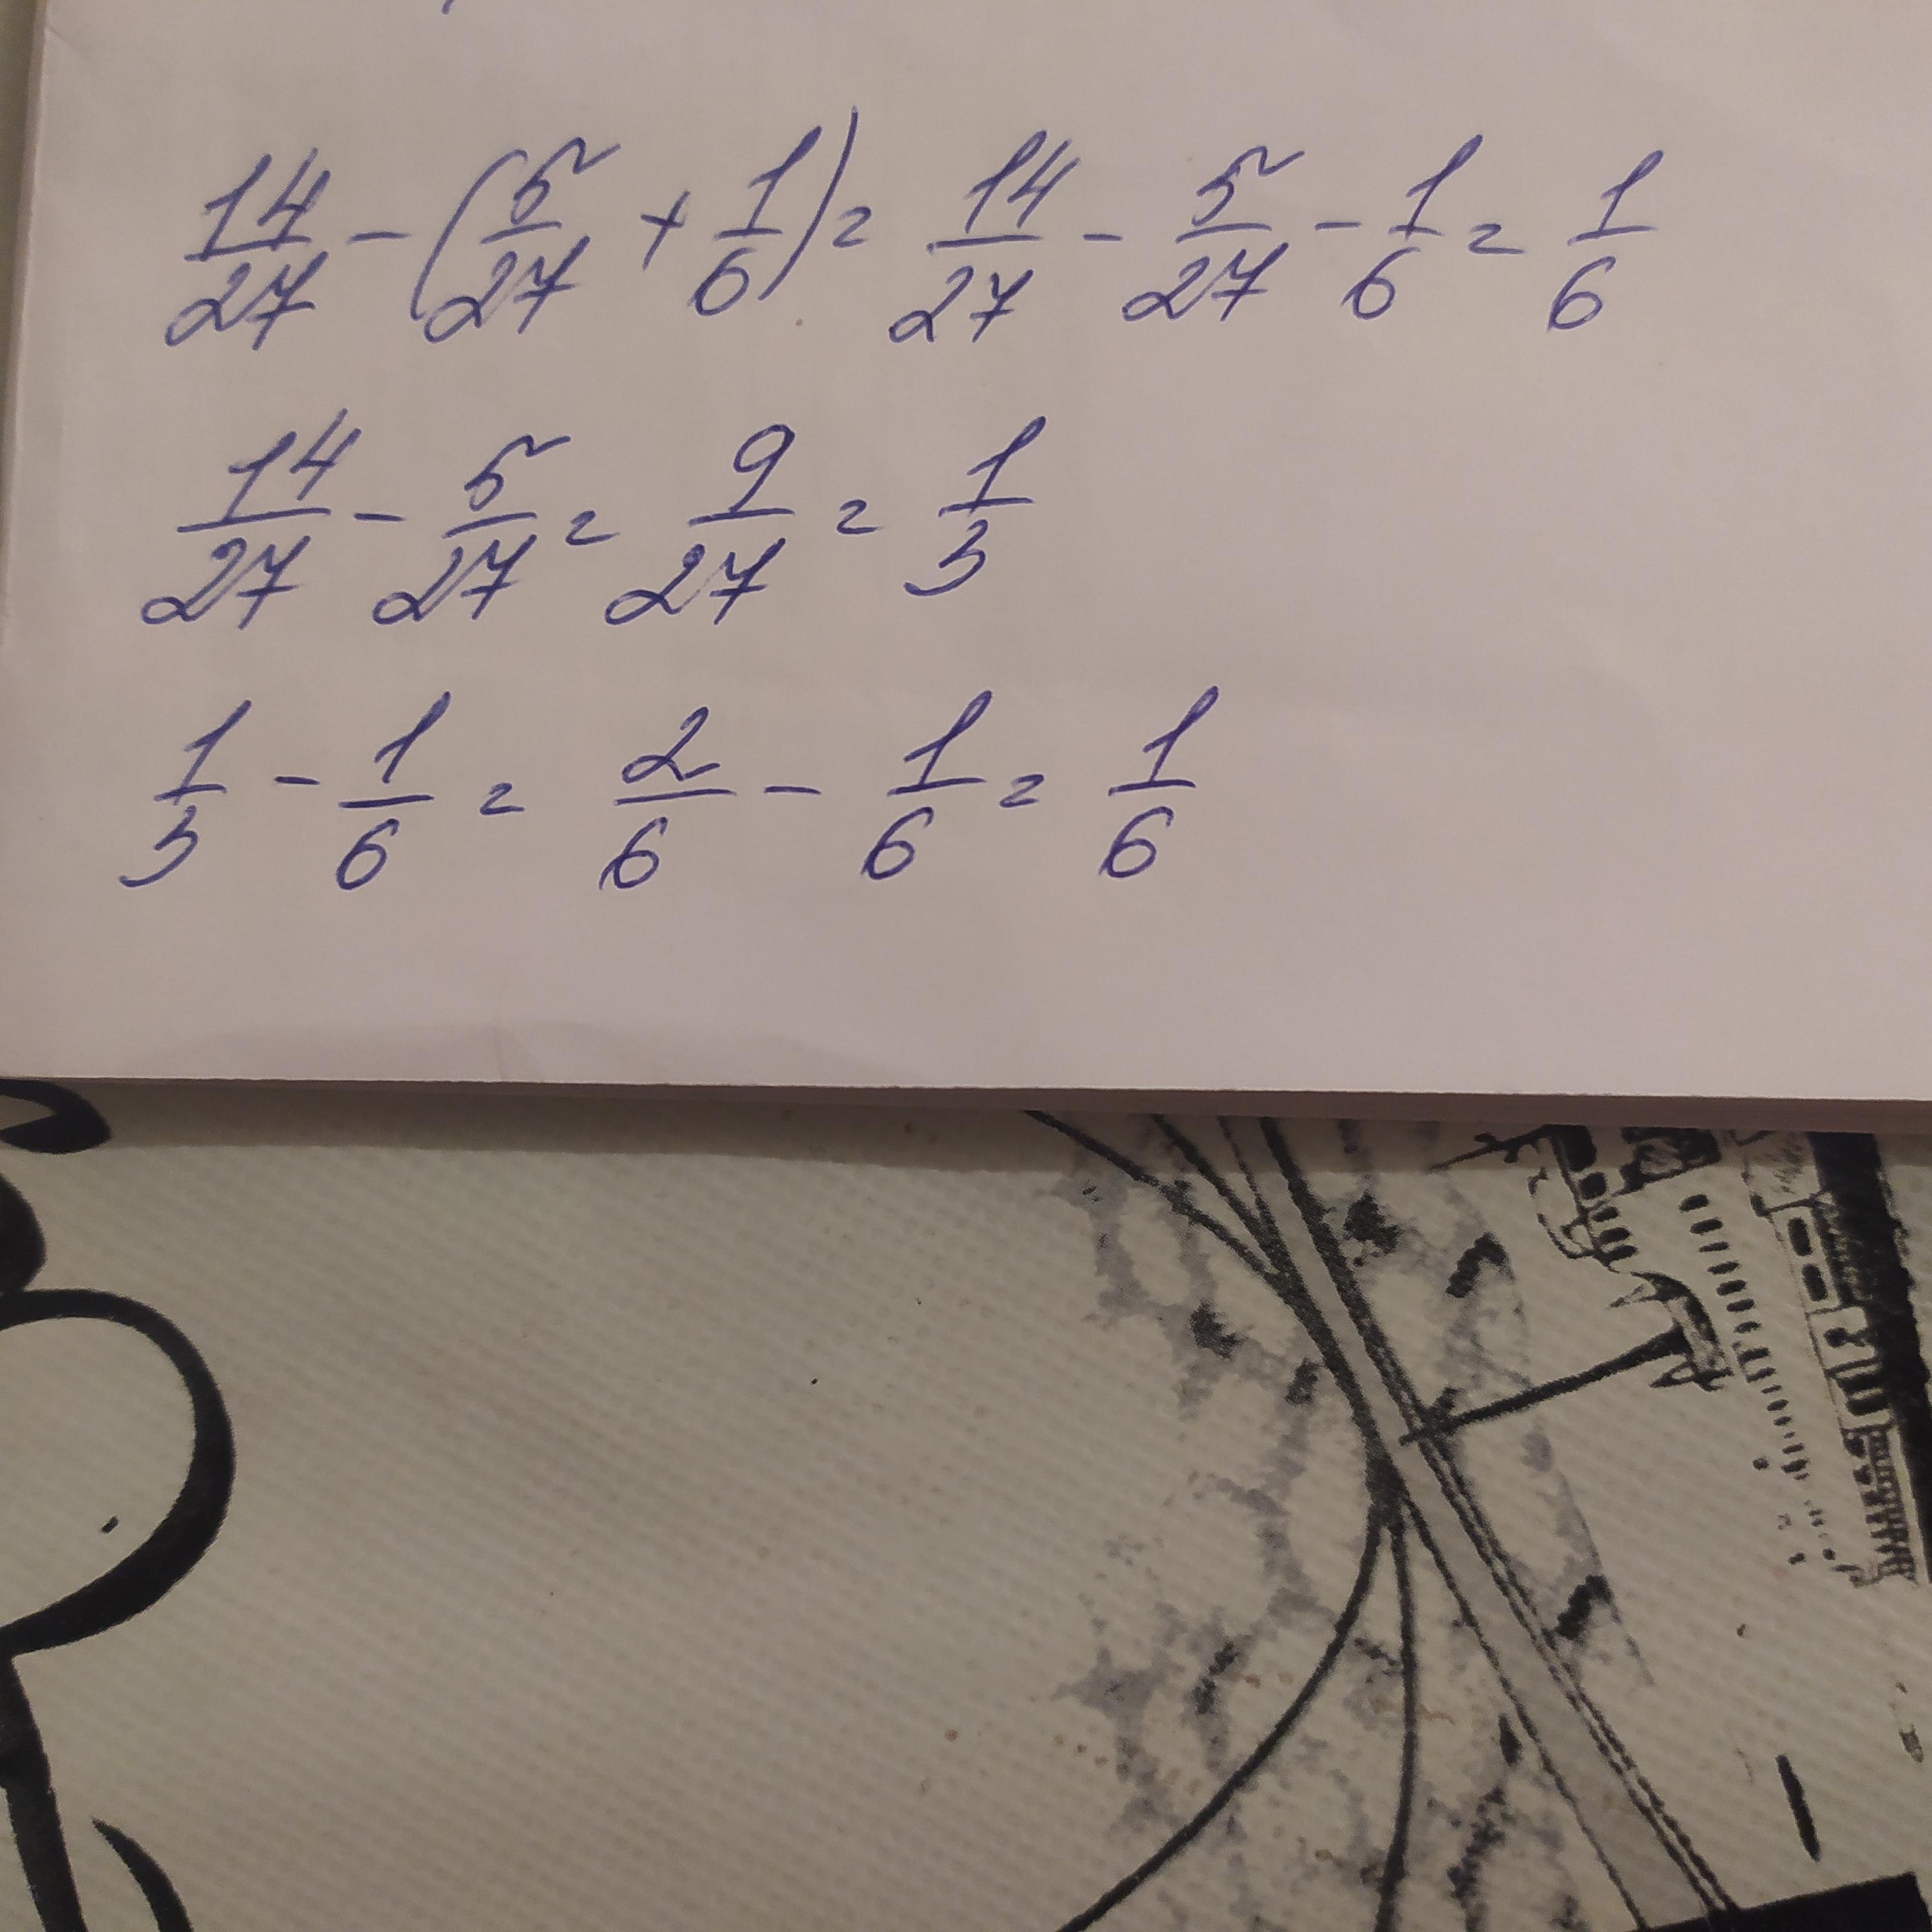 14/27 - (5/27 + 1/6) = 14/27 - 5/27 - 1/6 = 1/6
14/27 - 5/27 = 9/27 = 1/3
1/3 - 1/6 = 2/6 - 1/6 = 1/6